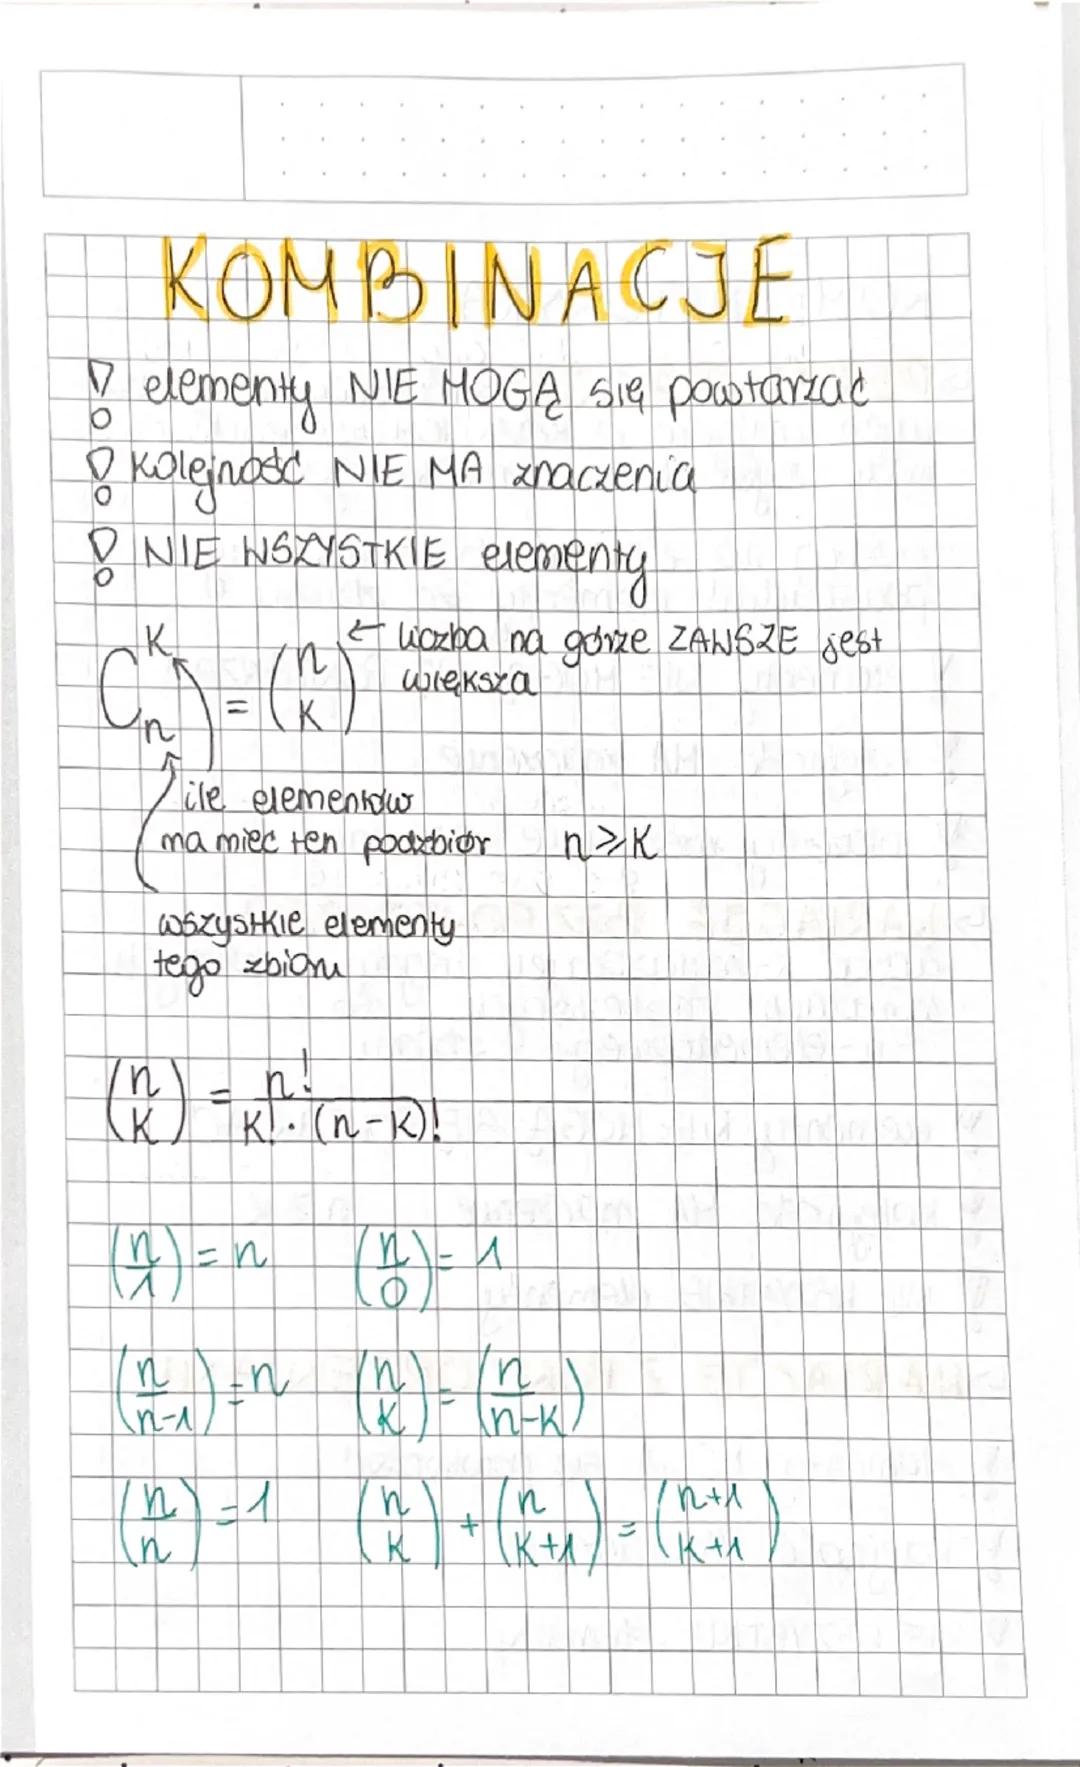 KOMBINACJE
! elementy NIE MOGĄ się powtarzać
! kolejność NIE MA znaczenia
! NIE WSZYSTKIE elementy
C_n^k = (n k) ← liczba na górze ZAWSZE jest
większa
ile elementów
ma mieć ten podzbiór n ≥ k
wszystkie elementy
tego zbioru
(n k) = n! / k! · (n-k)!
(n 1) = n (n 0) = 1
(n n-1) = n (n k) = (n n-k)
(n n) = 1 (n k) + (n k+1) = (n+1 k+1)